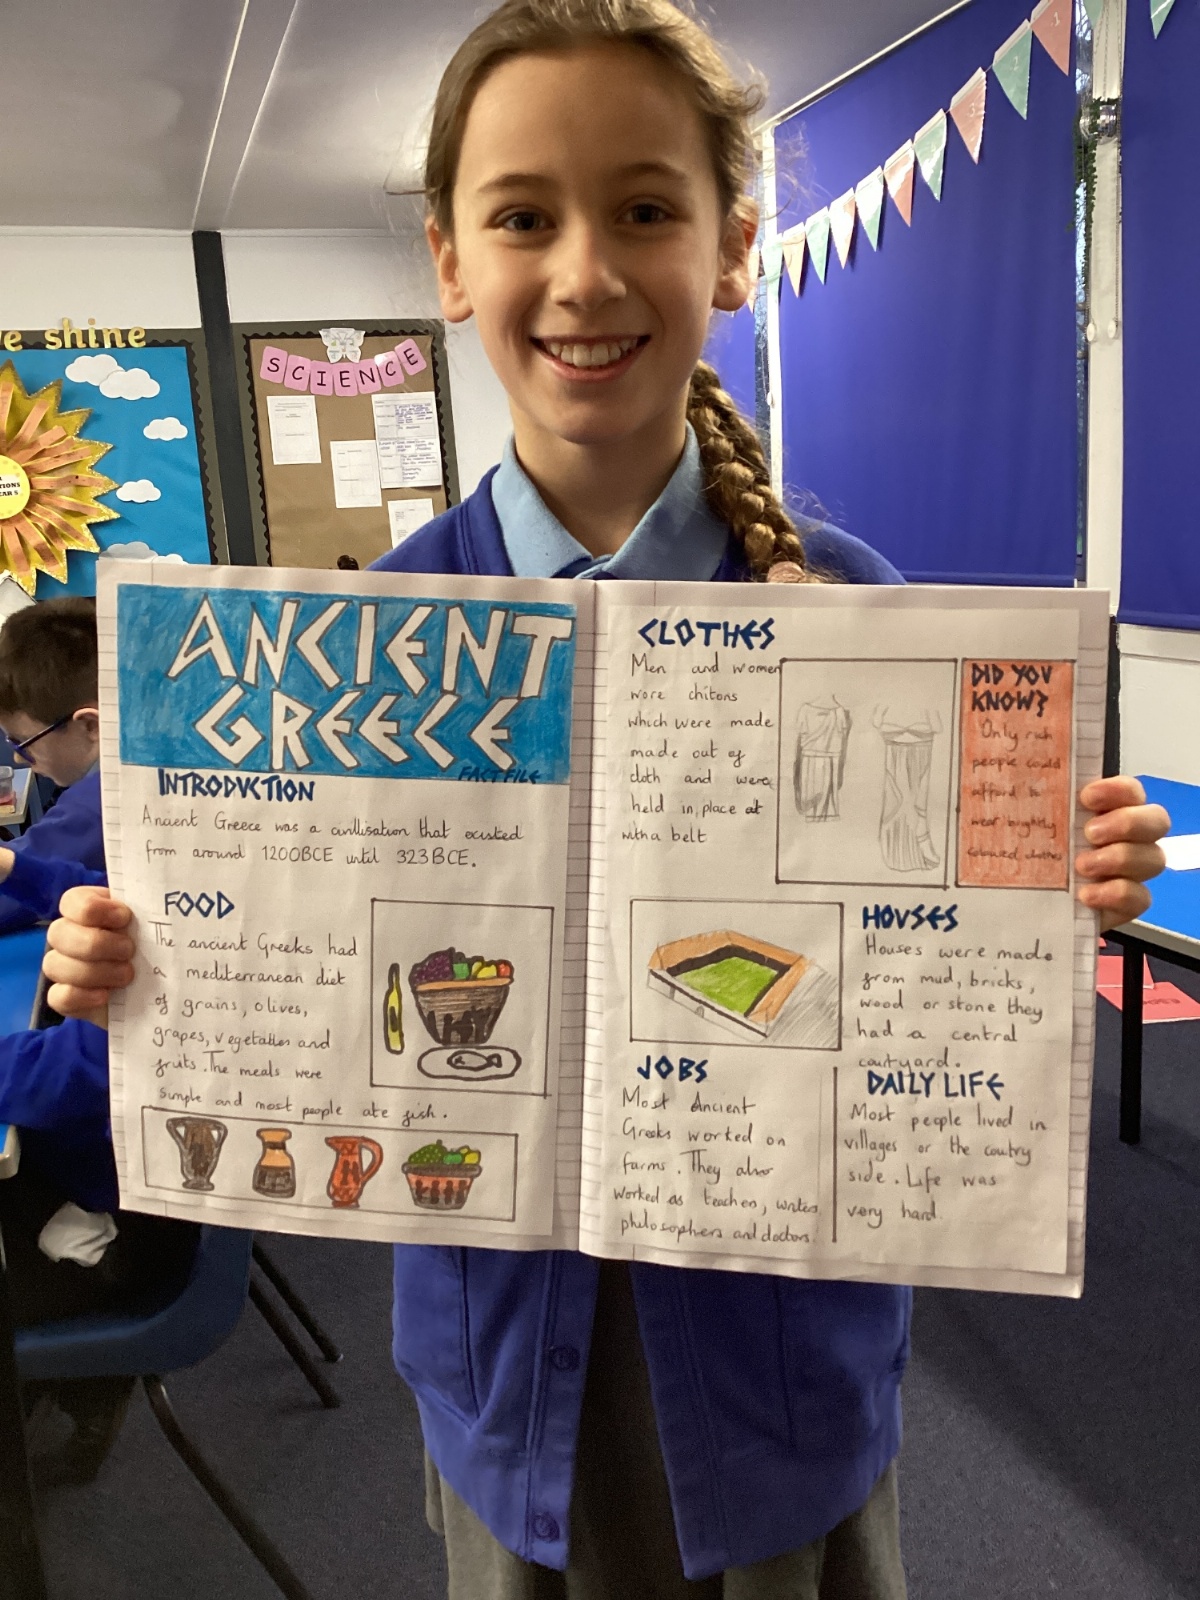 ve shine
SCIENCE
ANCIENT
GREECE
FACTFILE
INTRODUCTION
Ancient Greece was a civillisation that existed
from around 1200BCE until 323BCE.
FOOD
The ancient Greeks had
a mediterranean diet
of grains, olives,
grapes, vegetables and
fruits. The meals were
simple and most people ate fish.
CLOTHES
Men and women
wore chitons
which were made
made out of
cloth and were
held in place at
with a belt
DID YOU
KNOW?
Only rich
people could
afford to
wear brightly
coloured clothes
HOUSES
Houses were made
from mud, bricks,
wood or stone they
had a central
courtyard.
JOBS
Most Ancient
Greeks worked on
farms. They also
worked as teachers, writers,
philosophers and doctors.
DAILY LIFE
Most people lived in
villages or the coutry
side. Life was
very hard.